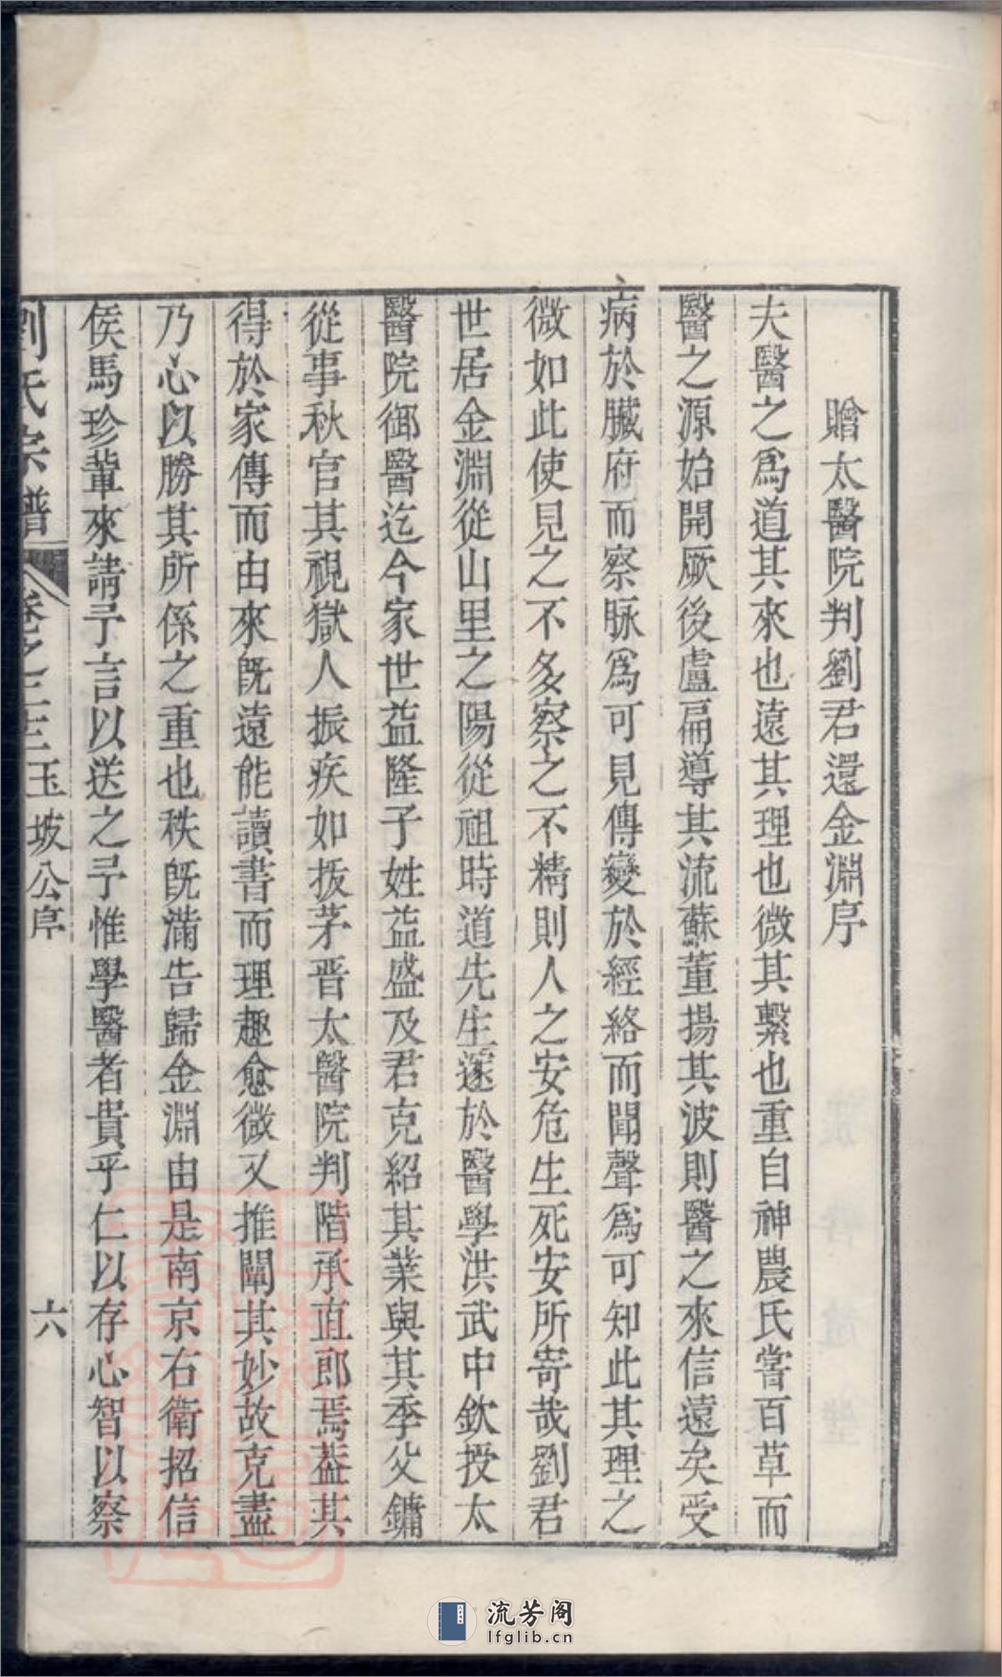 贈太醫院判劉君還金淵序
夫醫之爲道其來也遠其理也微其繫也重自神農氏嘗百草而
醫之源始開厥後盧扁導其流蘇董揚其波則醫之來信遠矣受
病於臟府而察脉爲可見傳變於經絡而聞聲爲可知此其理之
微如此使見之不多察之不精則人之安危生死安所寄哉劉君
世居金淵從山里之陽從祖時道先生邃於醫學洪武中欽授太
醫院御醫迄今家世益隆子姓益盛及君克紹其業與其季父鏞
從事秋官其視獄人振疾如拔茅晋太醫院判階承直郎焉葢其
得於家傳而由來既遠能讀書而理趣愈微又推闡其妙故克盡
乃心以勝其所係之重也秩既滿告歸金淵由是南京右衛招信
侯馬珍輩來請予言以送之予惟學醫者貴乎仁以存心智以察
劉氏宗譜 卷之三 玉坡公序 六
流芳阁
lfglib.cn